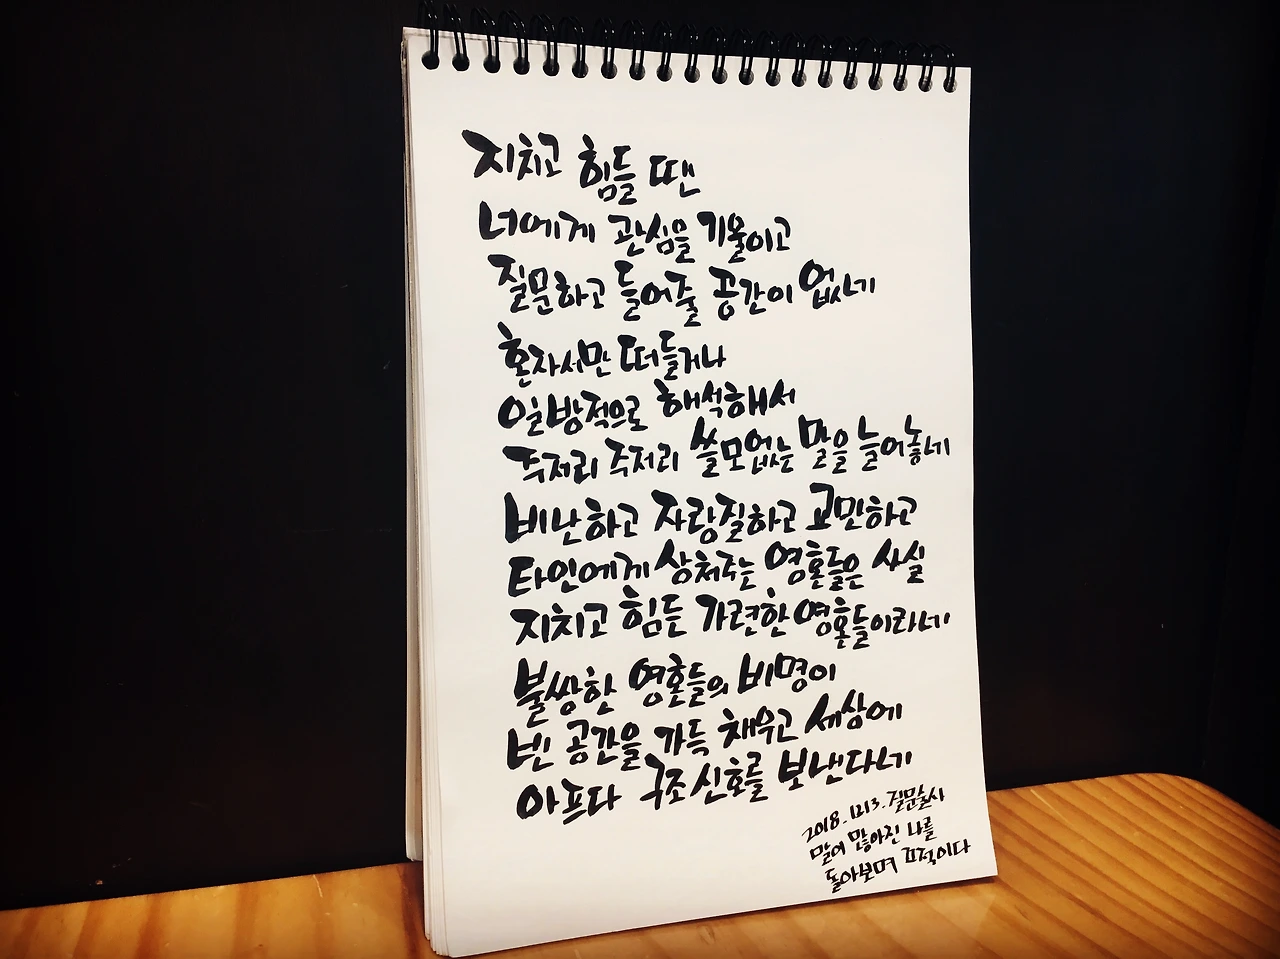 지치고 힘들 땐
너에게 관심을 기울이고
질문하고 들어줄 공간이 없네
혼자서만 떠들거나
일방적으로 해석해서
주저리 주저리 쓸모없는 말을 늘어놓네
비난하고 자랑질하고 교만하고
타인에게 상처주는 영혼들은 사실
지치고 힘든 가련한 영혼들이라네
불쌍한 영혼들의 비명이
빈 공간을 가득 채우고 세상에
아프다 구조신호를 보낸다네
2018.1213. 질문술사
말이 많아진 나를
돌아보며 끄적이다